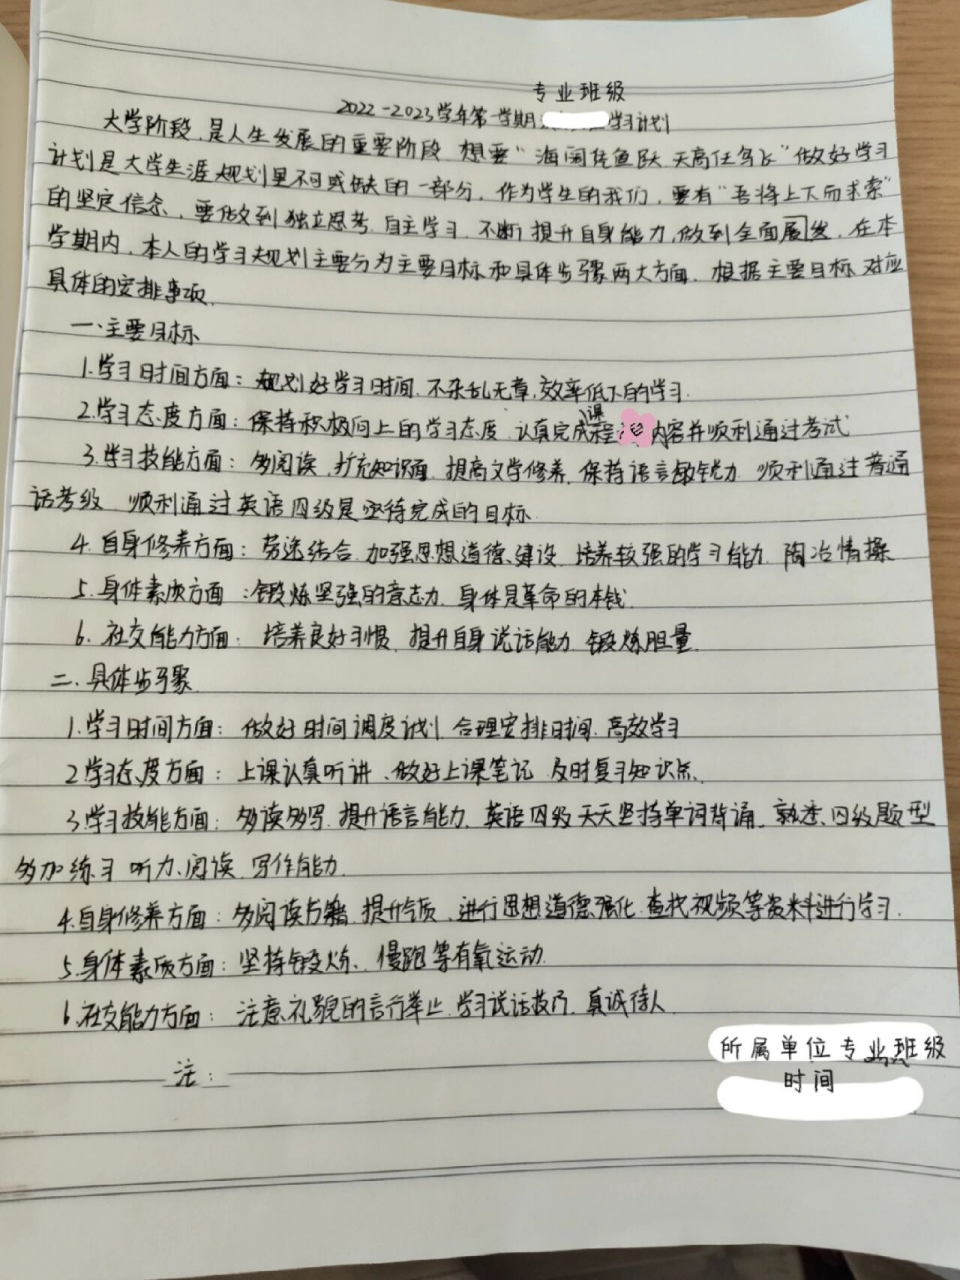 专业班级
2022-2023学年第一学期 学习计划
大学阶段,是人生发展的重要阶段 想要"海阔凭鱼跃 天高任鸟飞"做好学习
计划是大学生涯规划里不可或缺的一部分,作为学生的我们,要有"吾将上下而求索"
的坚定信念,要做到独立思考.自主学习.不断提升自身能力,做到全面展发,在本
学期内,本人的学习规划主要分为主要目标和具体步骤两大方面.根据主要目标对应
具体的安排事项.
一.主要目标
1.学习时间方面:规划好学习时间.不杂乱无章,效率低下的学习.
2.学习态度方面:保持积极向上的学习态度.认真完成课程内容并顺利通过考试
3.学习技能方面:多阅读、扩充知识面,提高文学修养,保持语言敏锐力 顺利通过普通
话考级.顺利通过英语四级是亟待完成的目标.
4.自身修养方面:劳逸结合.加强思想道德建设 培养较强的学习能力.陶冶情操
5.身体素质方面:锻炼坚强的意志力.身体是革命的本钱.
6.社交能力方面:培养良好习惯.提升自身说话能力 锻炼胆量.
二.具体步骤
1.学习时间方面:做好时间调度计划.合理安排时间.高效学习
2.学习态度方面:上课认真听讲、做好上课笔记 及时复习知识点、
3.学习技能方面:多读多写.提升语言能力.英语四级天天坚持单词背诵、熟悉四级题型
多加练习 听力、阅读、写作能力.
4.自身修养方面:多阅读书籍.提升气质、进行思想道德强化.查找视频等资料进行学习.
5.身体素质方面:坚持锻炼、慢跑等有氧运动.
6.社交能力方面:注意礼貌的言行举止.学习说话技巧.真诚待人.
所属单位专业班级
注:
时间